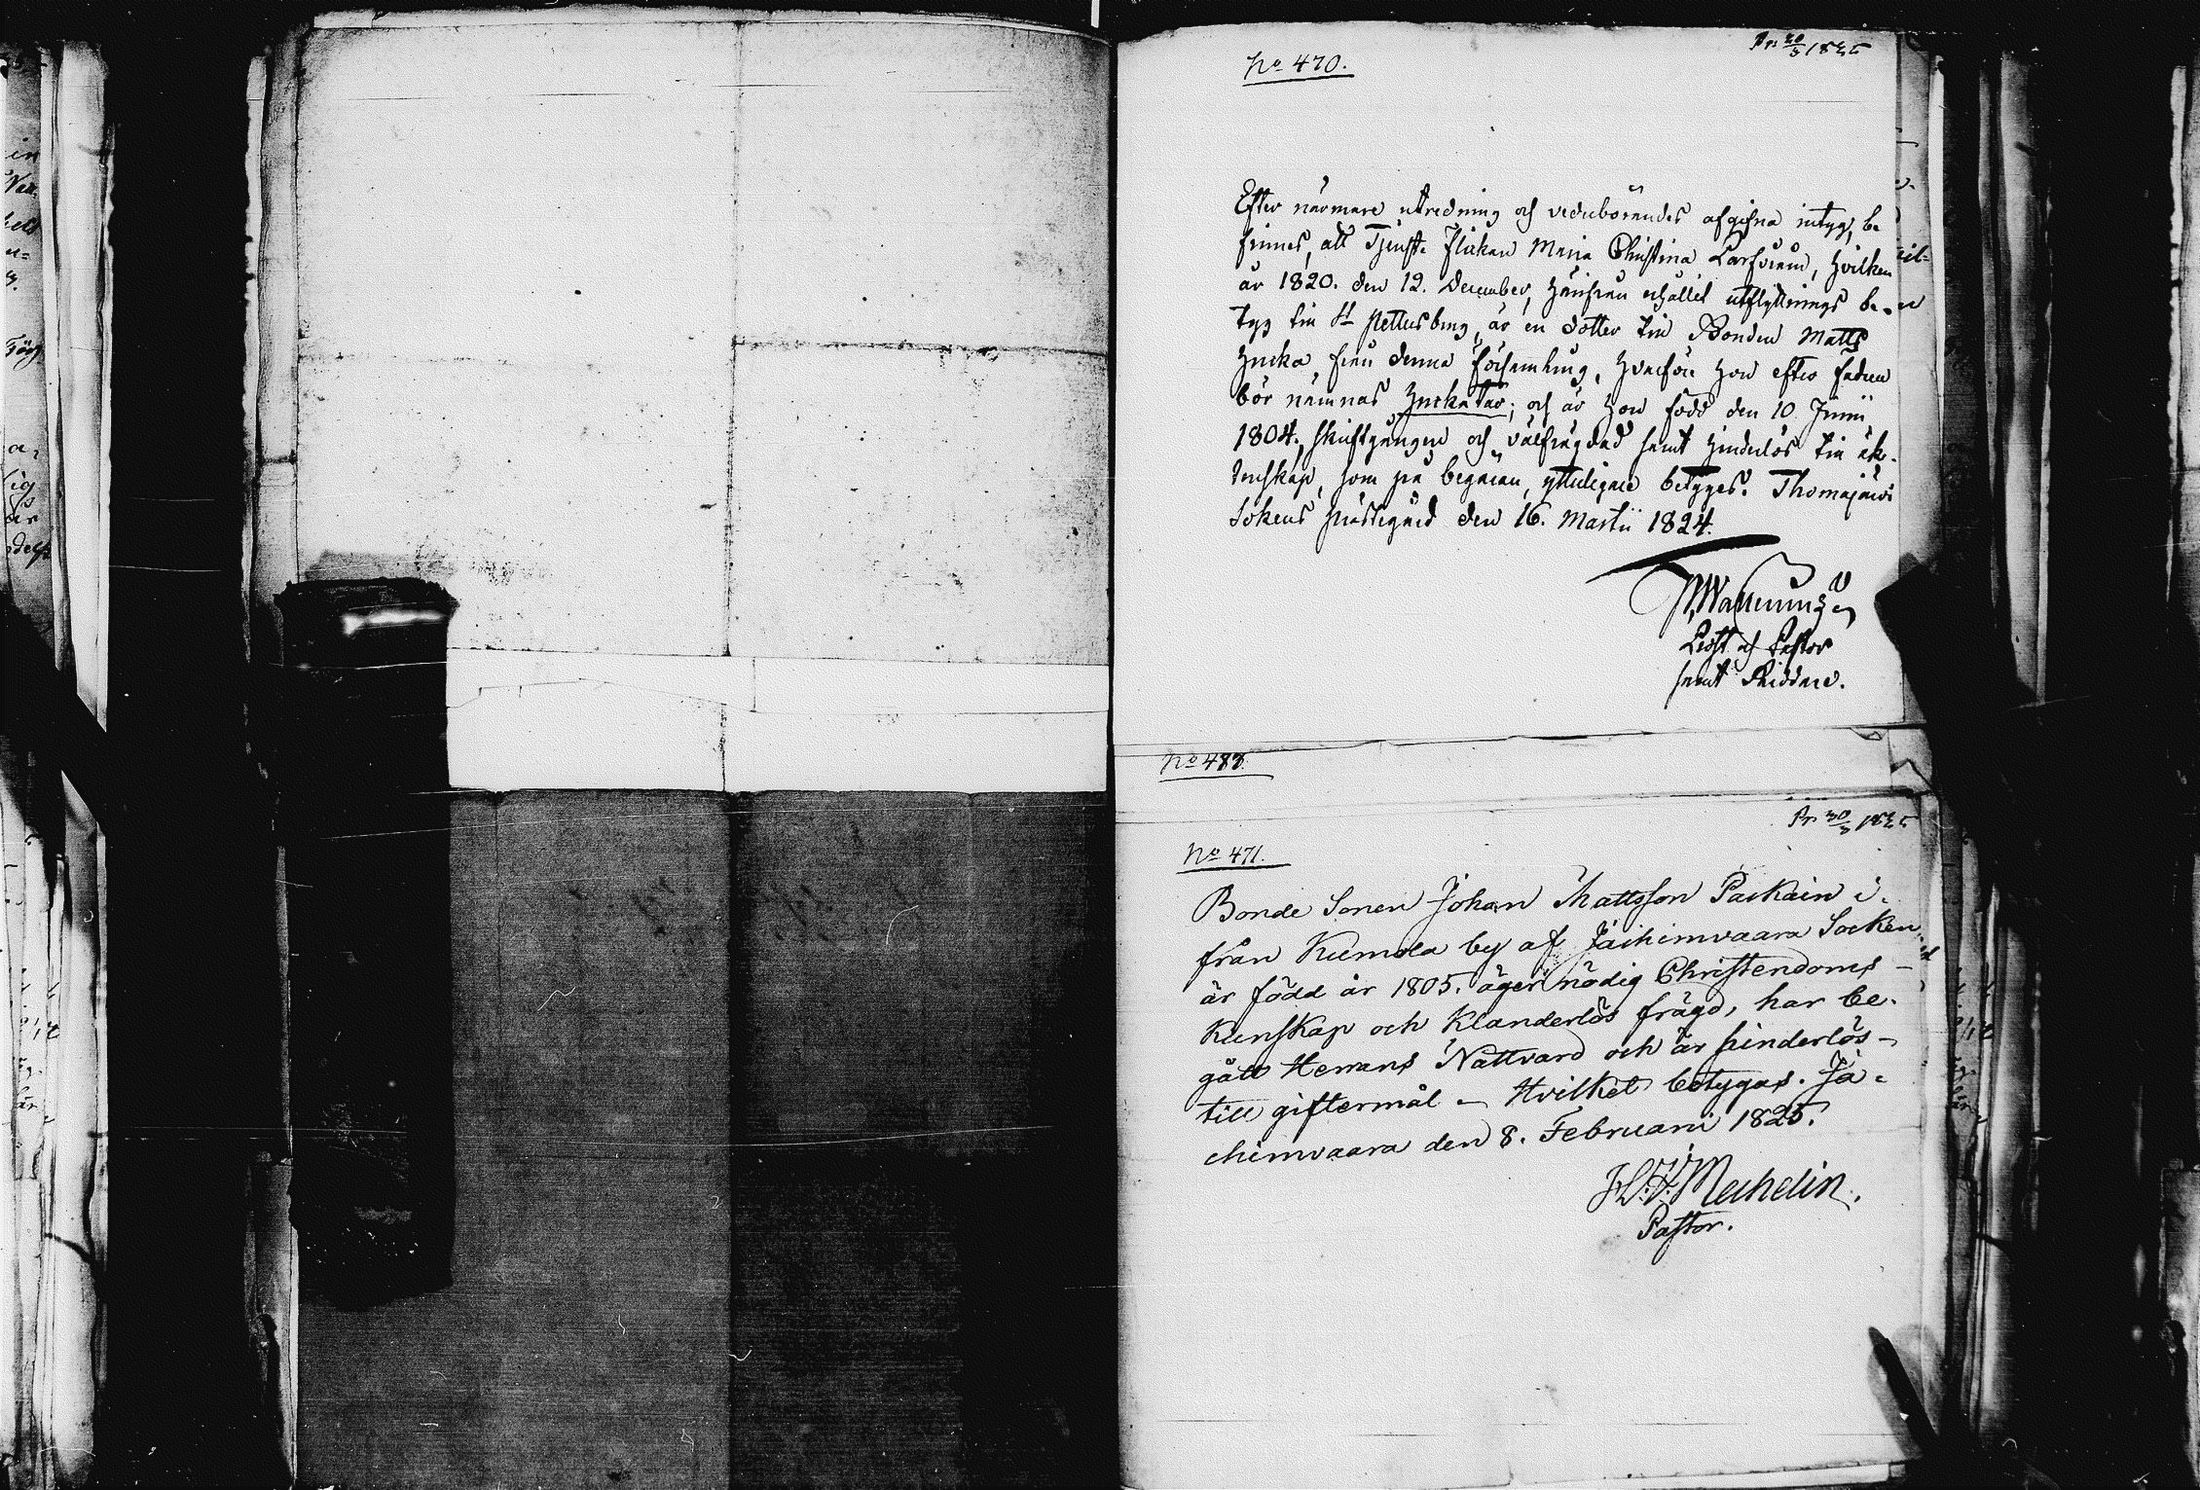 Pr. 30/3 1825
No 470.
Efter närmare utredning och vederbörandes afgifna intyg, be
finnes, att Tjenste Flickan Maria Christina Larsdotter, hvilken
år 1820. den 12. December, härifrån erhållit utflyttnings be-
tyg till St Pettersburg, är en dotter till Bonden Matts
Hucka från denna församling, hvarföre hon efter fadren
bör nämnas Huckatar; och är hon född den 10 Junii
1804, skriftgången och välfrägdad samt hinderlös till äk-
tenskap, som på begäran, ytterligare betyges. Thomajärvi
Sokens prästegård den 16. Martii 1824.
Prost och Pastor
samt Riddare.
No 488.
Pr. 30/3 1825
No 471.
Bonde Sonen Johan Mattsson Paskain i-
från Kumola by af Jäskimvaara Socken
är född år 1805. äger nödig Christendoms-
Kunskap och Klanderlös frägd, har be-
gått Herrans Nattvard och är hinderlös
till giftermål - Hvilket betygas. Jä-
chimvaara den 8. Februarii 1825.
Mechelin.
Pastor.